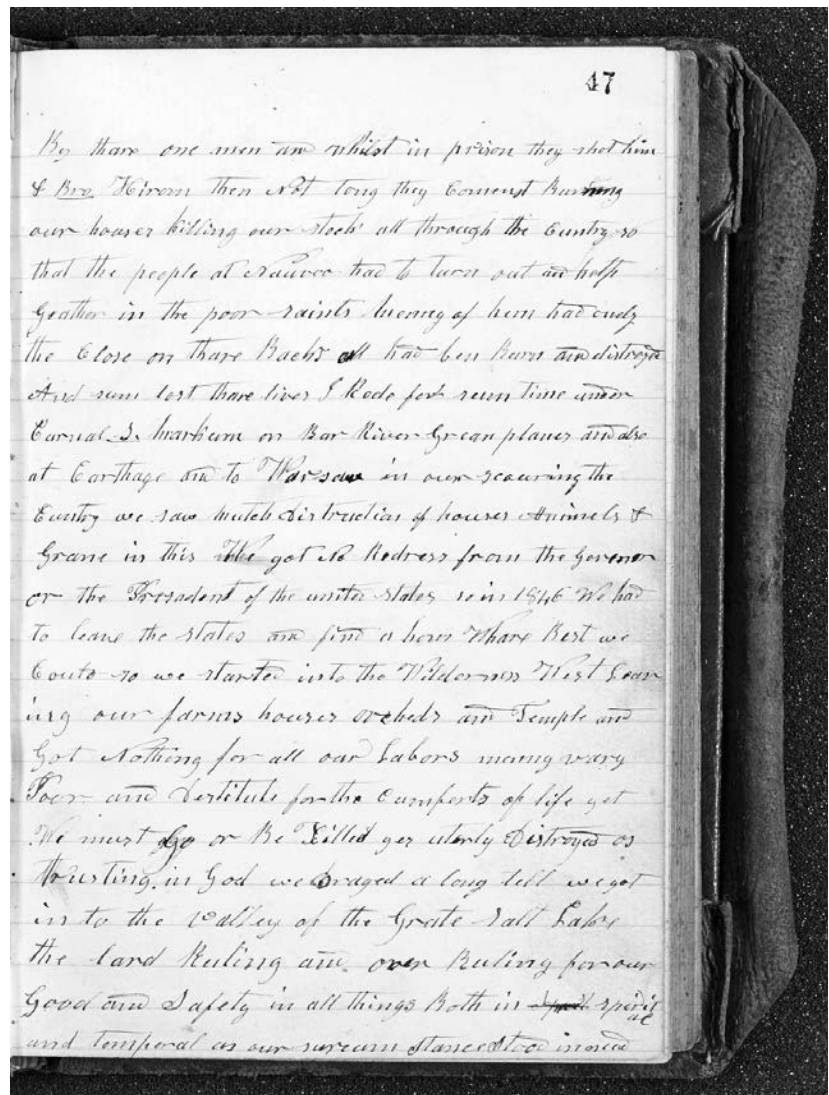 47
By thare one men and whilst in prison they shot him
& Bro. Hirom then Not long they Comenst Burning
our houses killing our stock all through the Cuntry so
that the people at Nauvoo had to turn out and help
Geather in the poor saints meeny of hem had ondy
the Close on thare Backs all had ben Burn and distroyed
And sum lost thare lives I Rode for sum time under
Curnal S. Markum on Bar River Grean planes and also
at Carthage and to Warsaw in our scouring the
Cuntry we saw mutch Distruction of houses Animels &
Grane in this We got No Redress from the Govenor
or the Presadent of the united states so in 1846 We had
to leave the states and find a hom Whare Best we
Could so we started into the Wilderness West Leav
ing our farms houses orcheds and Temple and
Got Nothing for all our Labors meny vary
Poor and Destitute for the Cumforts of life yet
We must Go or Be Killed yes uterly Distroyed so
thrusting in God we Draged a long tell we got
in to the valley of the Grate Salt Lake
the Lord Ruling and over Ruling for our
Good and Safety in all things Both in spirit
ual
and temporal as our surcumstances stood in nead